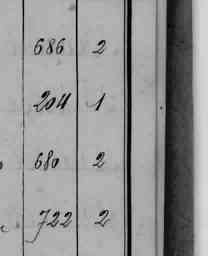 686 2
204 1
680 2
722 2